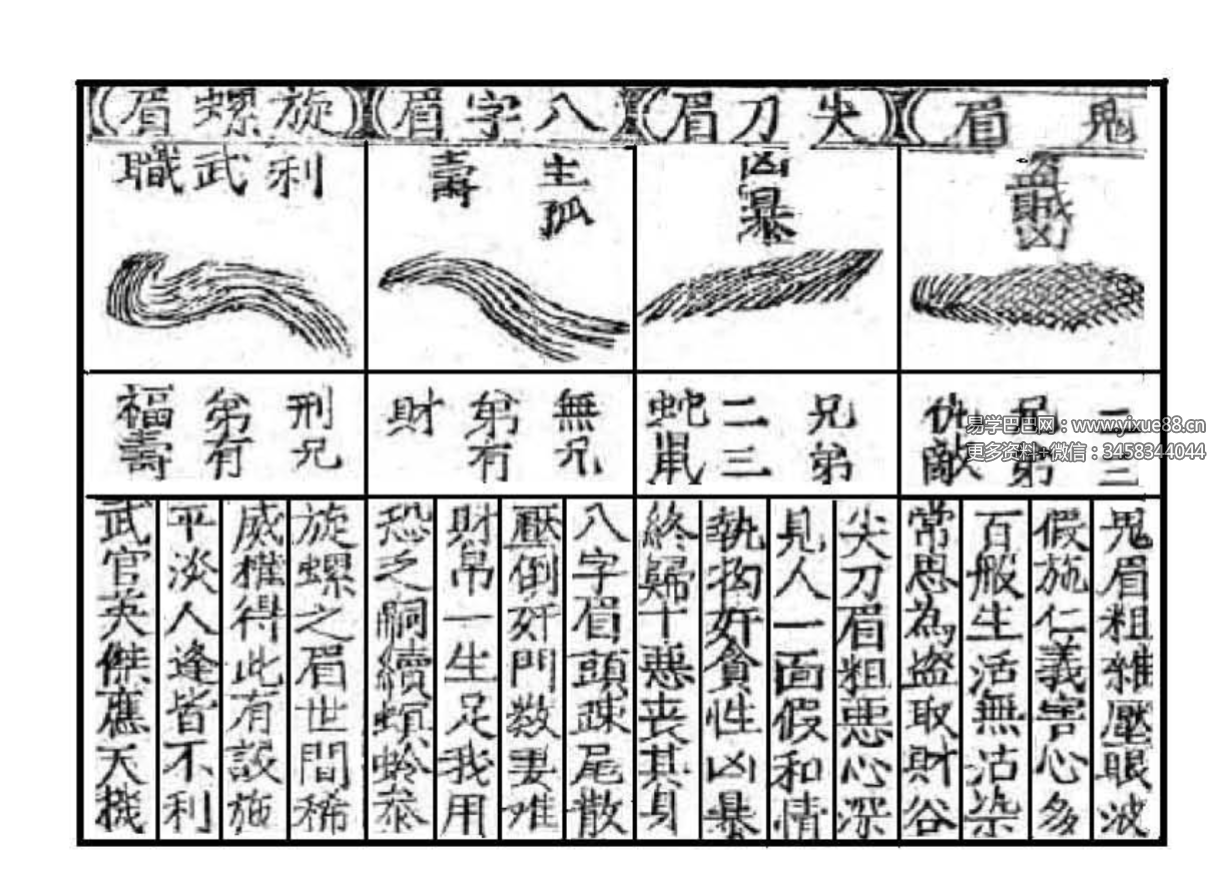 鬼眉
盜賊凶
二三
兄弟
仇敵
鬼眉粗雜壓眼波
假施仁義害心多
百般生活無沾染
常思為盜取財谷
尖刀眉
凶暴
兄弟
二三
蛇鼠
尖刀眉粗惡心深
見人一面假和情
執拘奸貪性凶暴
終歸十惡丧其身
八字眉
主孤
壽
無兄
弟有
財
八字眉頭疎尾散
壓倒奸門数妻难
財帛一生足我用
恐乏嗣續螟蛉叅
旋螺眉
利武職
刑兄
弟有
福壽
旋螺之眉世間稀
威權得此有設施
平淡人逢皆不利
武官英傑應天機
易学巴巴网：www.yixue88.cn
更多资料+微信：3458344044